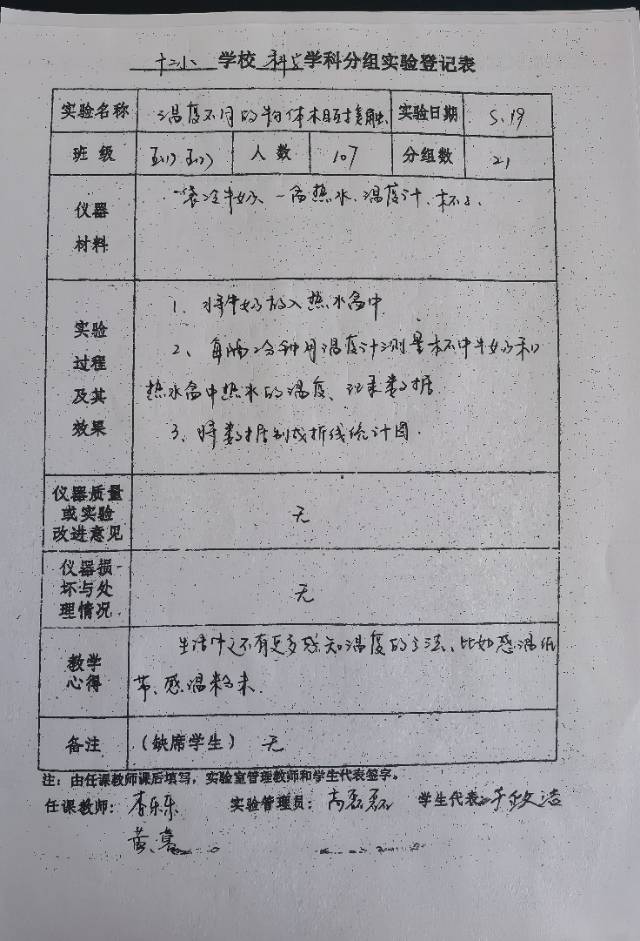 十二小 学校 科学 学科分组实验登记表
实验名称 温度不同的物体相互接触 实验日期 5.19
班 级 五(1) 五(2) 人 数 107 分组数 21
仪器
材料
一袋冷牛奶、一杯热水、温度计、
实验
过程
及其
效果
1、将牛奶放入热水中
2、每隔2分钟用温度计测量杯中牛奶和
热水中热水的温度、记录数据
3、将数据制成折线统计图.
仪器质量
或实验
改进意见
无
仪器损
坏与处
理情况
无
教学
心得
生活中还有更多感知温度的方法、比如感温纸
感温粉末.
备注 (缺席学生) 无
注：由任课教师课后填写，实验室管理教师和学生代表签字。
任课教师： 李乐乐 实验管理员：高磊磊 学生代表：